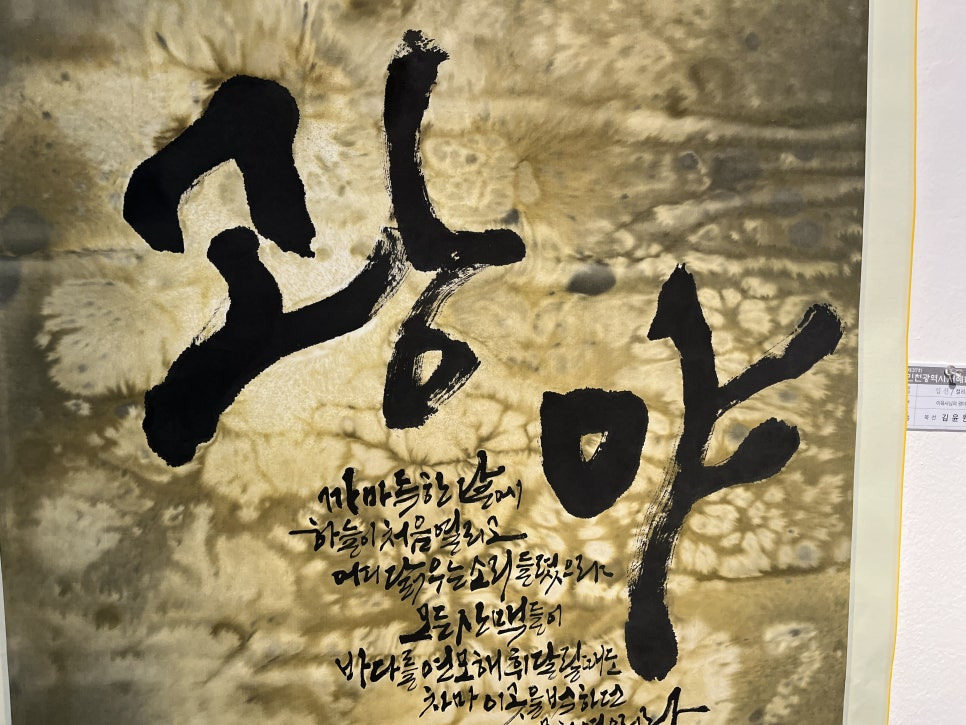 광야
까마득한 날에
하늘이 처음 열리고
어디 닭 우는 소리 들렸으랴
모든 산맥들이
바다를 연모해 휘달릴 때도
차마 이곳을 범하던
인천광역시서예
김윤